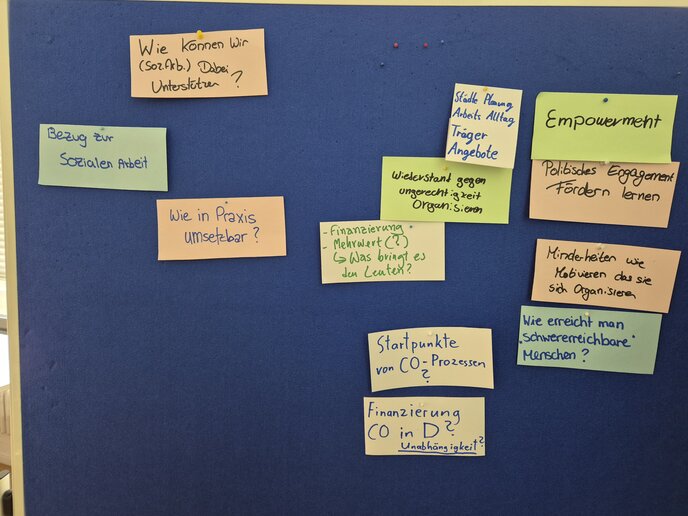 Wie können Wir
(Soz.Arb.) Dabei
Unterstützen ?
Bezug zur
Sozialen Arbeit
Wie in Praxis
umsetzbar ?
Städte Planung
Arbeits Alltag
Träger
Angebote
Wiederstand gegen
ungerechtigkeit
Organisieren
- Finanzierung
- Mehrwert (?)
↳ Was bringt es
den Leuten?
Empowerment
Politisches Engagement
Fördern lernen
Minderheiten wie
Motivieren das sie
sich Organisieren
Wie erreicht man
"schwererreichbare"
Menschen ?
Startpunkte
von CO-Prozessen
?
Finanzierung
CO in D ?
Unabhängigkeit ?